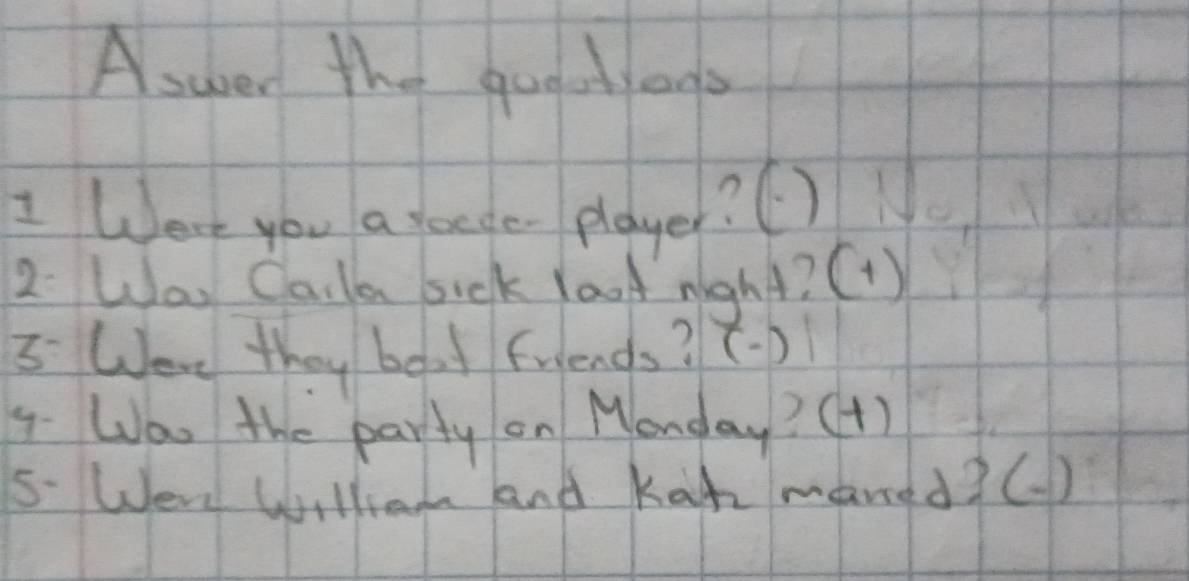 Aswer the questions
1 Were you a soccer player? (-) No, I
2- Was Carla sick last night? (+)
3- Were they best friends? (-)
4- Was the party on Monday? (+)
5- Were William and Kate married? (-)